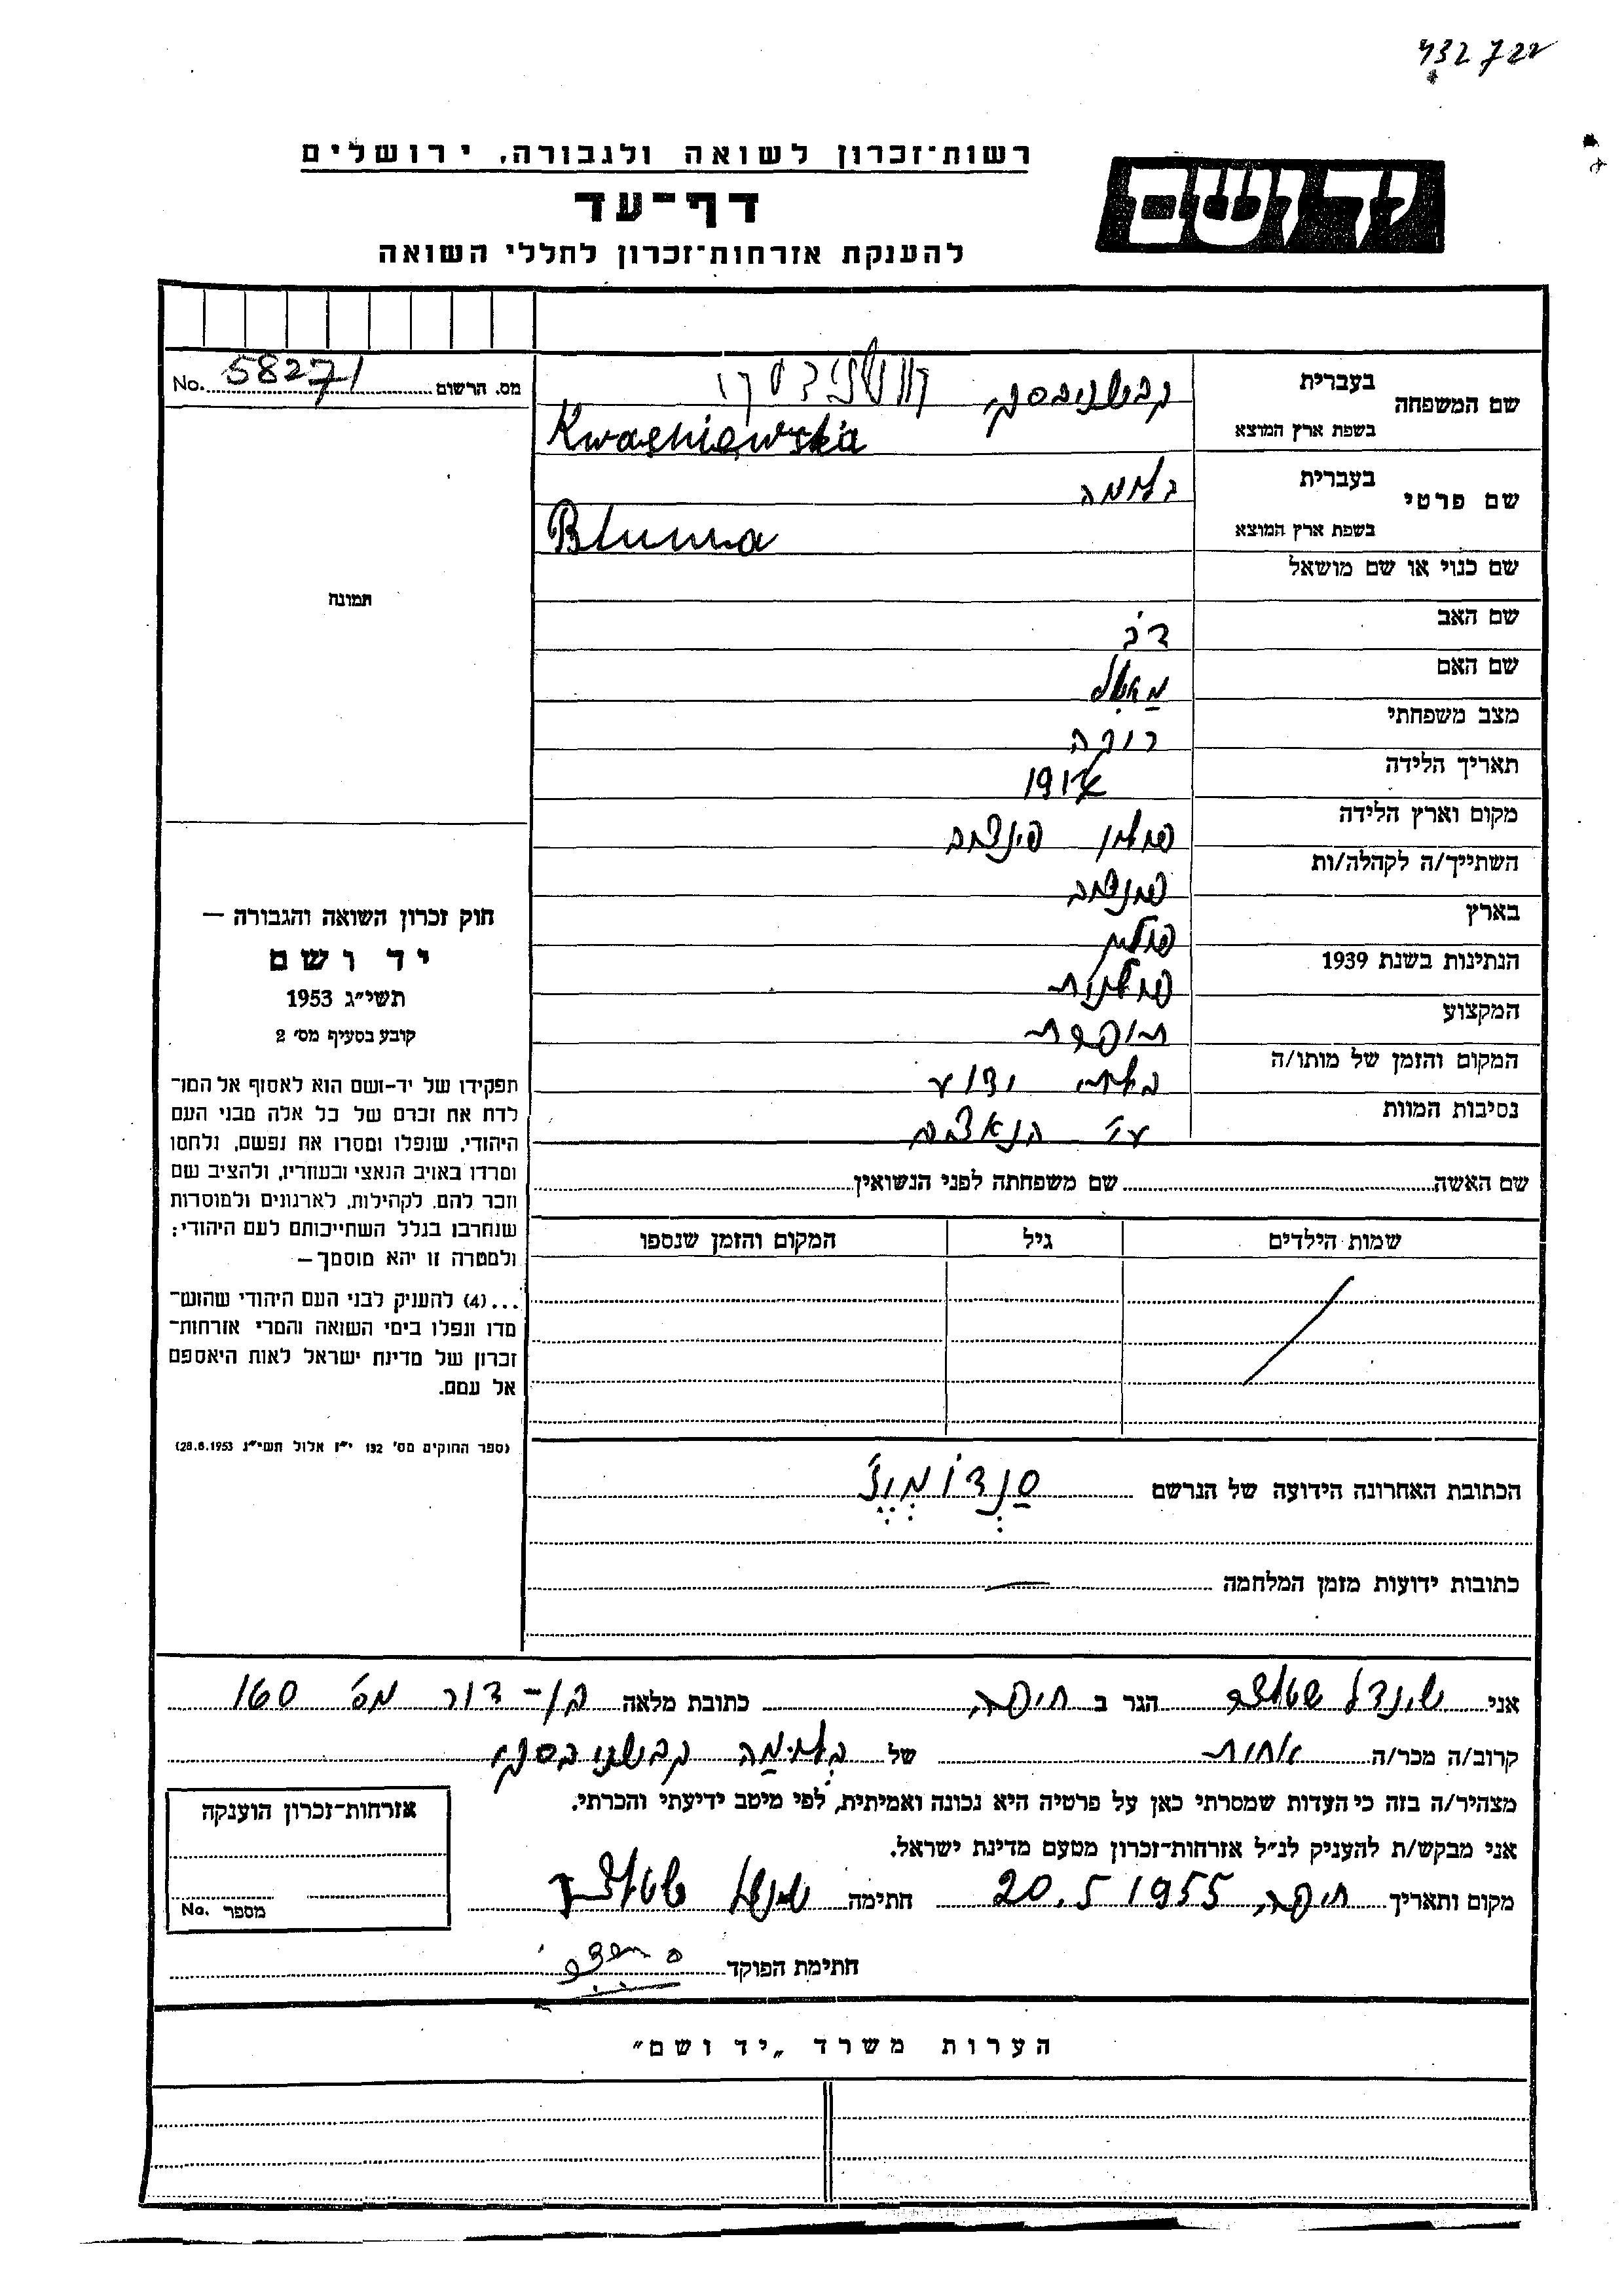 432722
רשות־זכרון לשואה ולגבורה, ירושלים
יד ושם
דף־עד
להענקת אזרחות־זכרון לחללי השואה
מס. הרשום 58271 No.
שם המשפחה
בעברית קבשניבסקי
בשפת ארץ המוצא Kwaśniewska
שם פרטי
בעברית בלומה
בשפת ארץ המוצא Bluma
שם כנוי או שם מושאל
שם האב דב
שם האם
מצב משפחתי רוקה
תאריך הלידה 1914
מקום וארץ הלידה פולין פינצוב
השתייך/ה לקהלה/ות פינצוב
בארץ פולין
הנתינות בשנת 1939 פולנית
המקצוע תופרת
המקום והזמן של מותו/ה בלתי ידוע
נסיבות המוות ע״י הנאצים
שם האשה שם משפחתה לפני הנשואין
שמות הילדים גיל המקום והזמן שנספו
תמונה
חוק זכרון השואה והגבורה —
יד ושם
תשי״ג 1953
קובע בסעיף מס׳ 2
תפקידו של יד־ושם הוא לאסוף אל המו־
לדת את זכרם של כל אלה מבני העם
היהודי, שנפלו ומסרו את נפשם, נלחמו
ומרדו באויב הנאצי ובעוזריו, ולהציב שם
וזכר להם, לקהילות, לארגונים ולמוסדות
שנחרבו בגלל השתייכותם לעם היהודי;
ולמטרה זו יהא מוסמך—
...(4) להעניק לבני העם היהודי שהוש־
מדו ונפלו בימי השואה והמרי אזרחות־
זכרון של מדינת ישראל לאות היאספם
אל עמם.
(ספר החוקים מס׳ 132 י״ז אלול תשי״ג 28.8.1953)
הכתובת האחרונה הידועה של הנרשם סַנְדוֹמְיֶז׳
כתובות ידועות מזמן המלחמה —
אני שינדל הגר ב חיפה, כתובת מלאה בן־דור מס׳ 160
קרוב/ה מכר/ה אחות של בלומה קבשניבסקי
מצהיר/ה בזה כי העדות שמסרתי כאן על פרטיה היא נכונה ואמיתית, לפי מיטב ידיעתי והכרתי.
אני מבקש/ת להעניק לנ״ל אזרחות־זכרון מטעם מדינת ישראל.
מקום ותאריך חיפה, 20.5.1955 חתימה שינדל
חתימת הפוקד
אזרחות־זכרון הוענקה
מספר No.
הערות משרד „יד ושם״